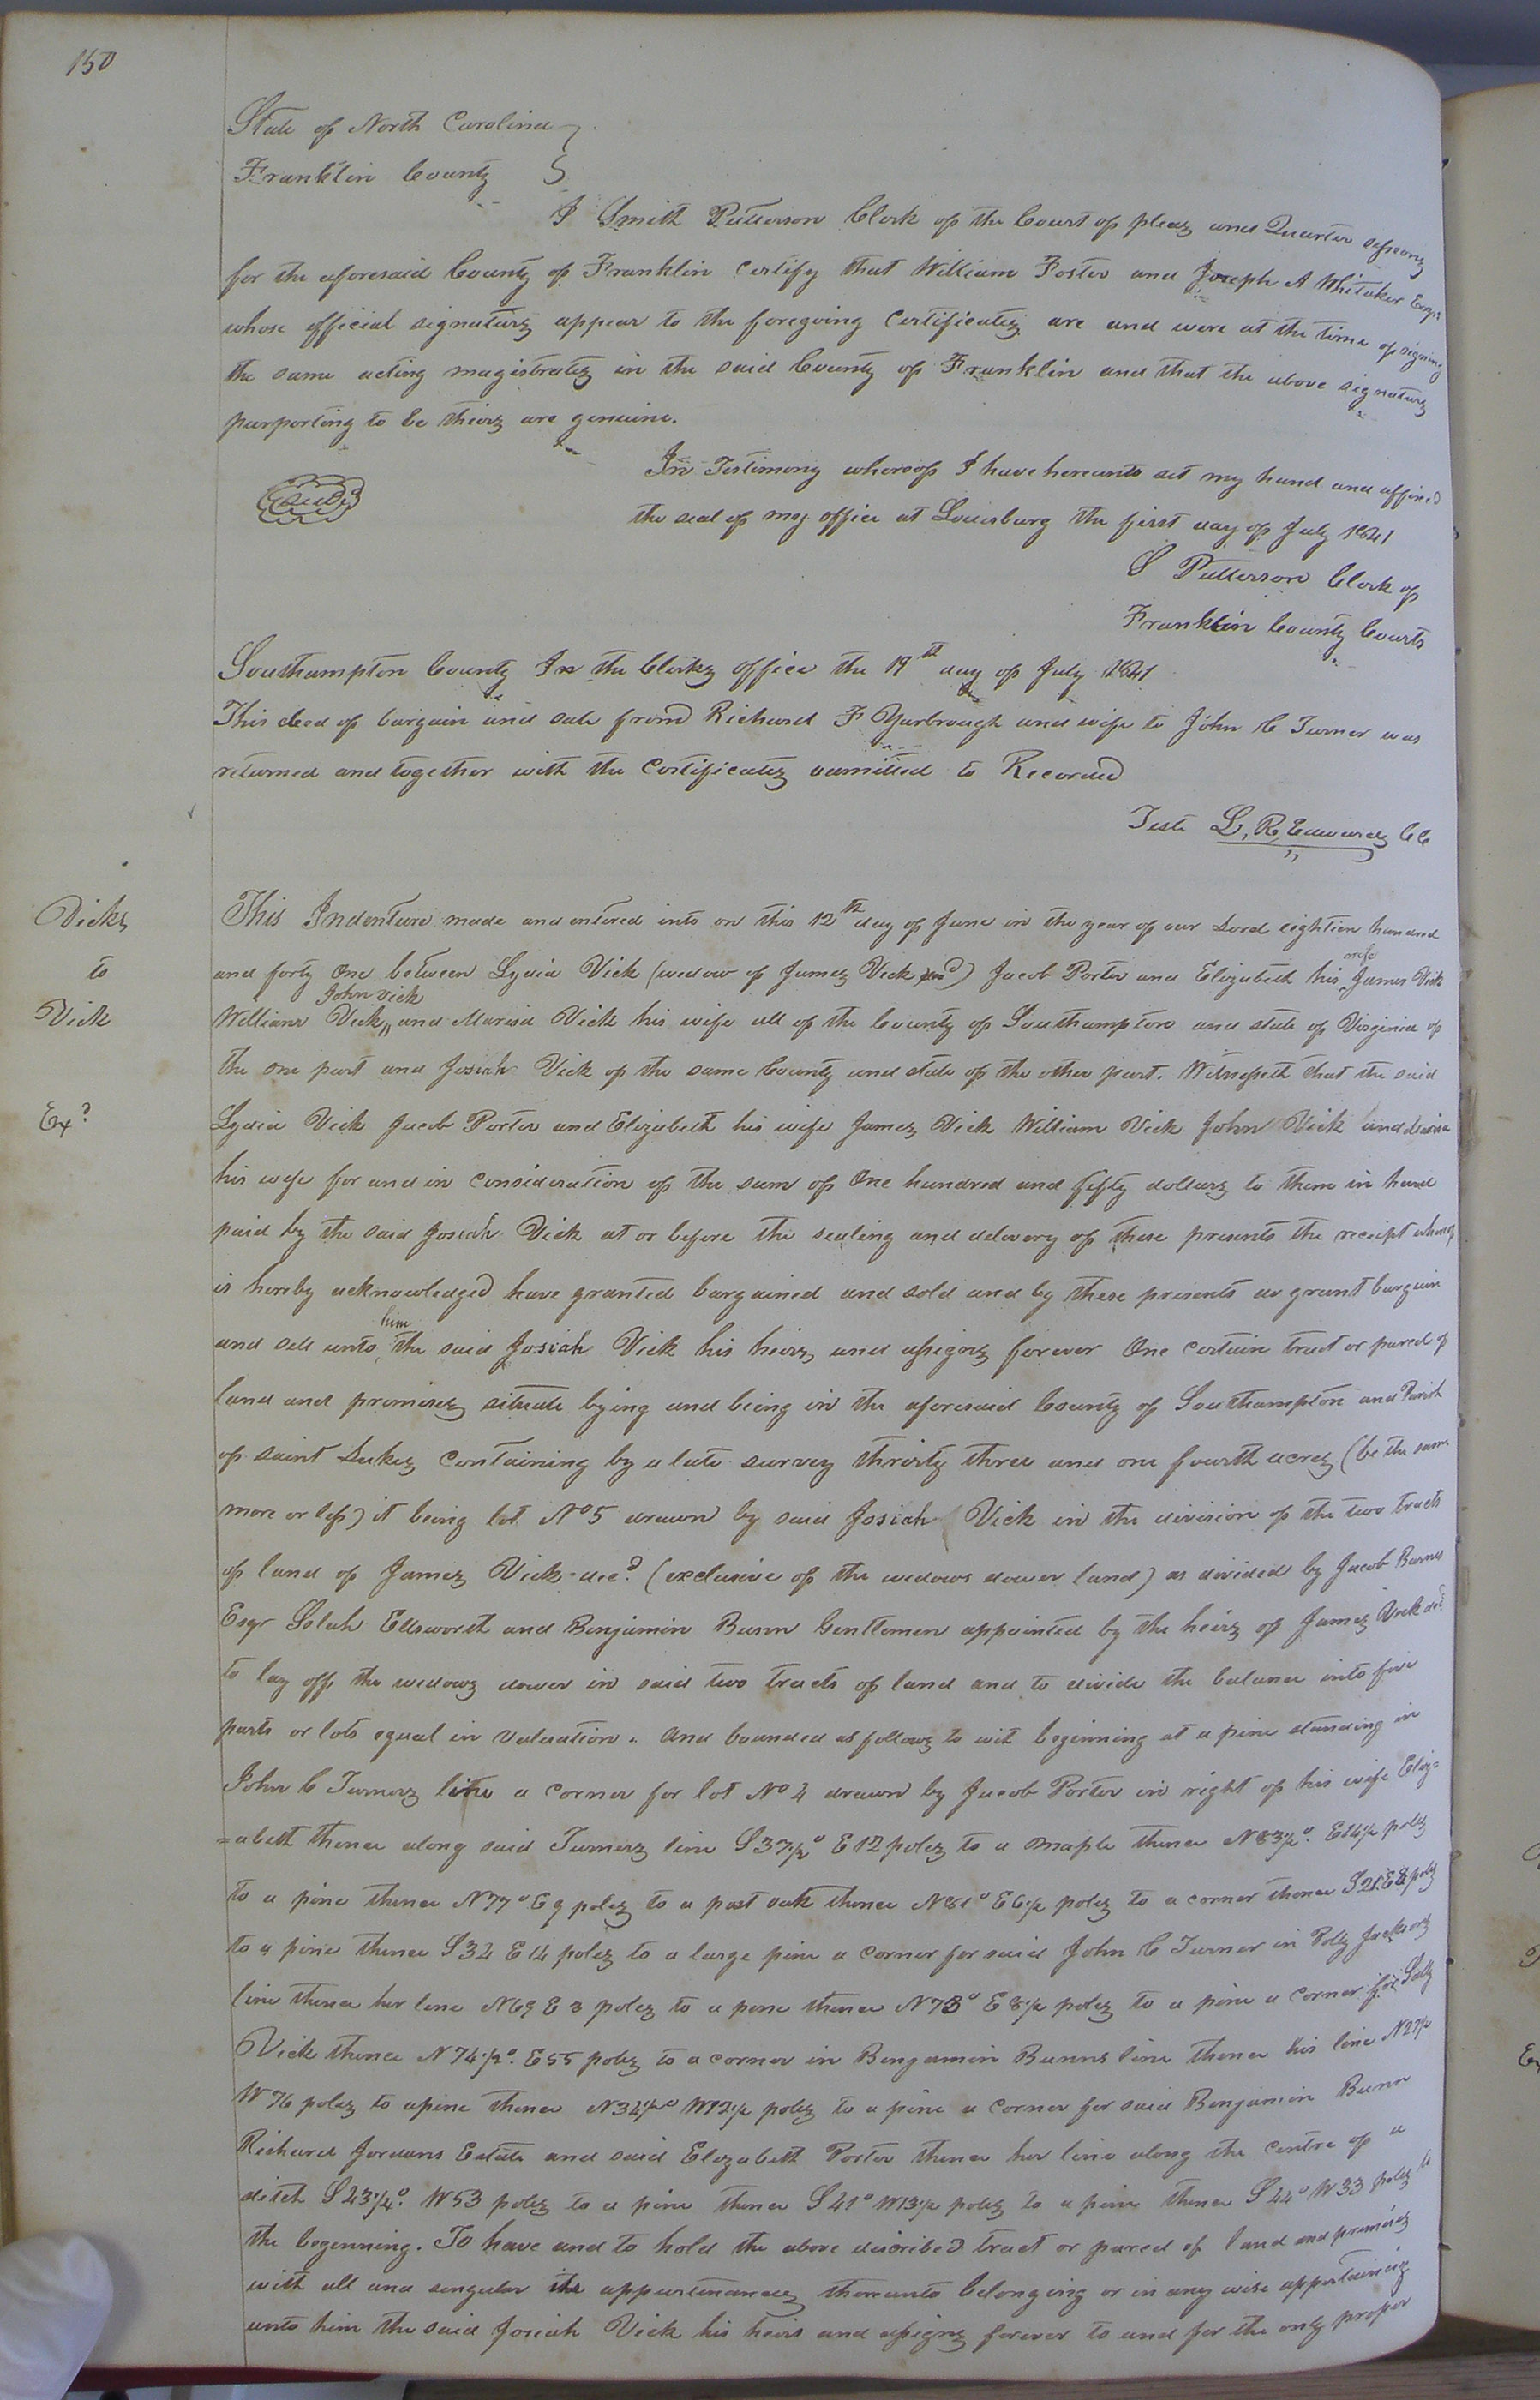 150
State of North Carolina
Franklin County
I Smith Patterson Clerk of the Court of pleas and Quarter sessions
for the aforesaid County of Franklin certify that William Foster and Joseph A Whitaker Esqrs
whose official signatures appear to the foregoing Certificates are and were at the time of signing
the same acting magistrates in the said County of Franklin and that the above signatures
purporting to be theirs are genuine.
In Testimony whereof I have hereunto set my hand and affixed
Seal
the seal of my office at Louisburg the first day of July 1841
S Patterson Clerk of
Franklin County Courts
Southampton County In the Clerks office the 19th day of July 1841
This deed of bargain and sale from Richard F Yarbrough and wife to John C Turner was
returned and together with the Certificates admitted to Record
Teste L, R, Edwards CC
Vicks
to
Vick
Exd
This Indenture made and entered into on this 12th day of June in the year of our Lord eighteen hundred
and forty One between Lydia Vick (widow of James Vick decd) Jacob Porter and Elizabeth his wife James Vick
William Vick, John Vick and Marisa Vick his wife all of the County of Southampton and state of Virginia of
the one part and Josiah Vick of the same County and state of the other part. Witnesseth that the said
Lydia Vick Jacob Porter and Elizabeth his wife James Vick William Vick John Vick and
his wife for and in consideration of the sum of One hundred and fifty dollars to them in hand
paid by the said Josiah Vick at or before the sealing and delivery of these presents the receipt whereof
is hereby acknowledged have granted bargained and sold and by these presents do grant bargain
and sell unto him the said Josiah Vick his heirs and assigns forever One certain tract or parcel of
land and premises situate lying and being in the aforesaid County of Southampton and Parish
of saint Lukes containing by a late survey thirty three and one fourth acres (be the same
more or less) it being lot No 5 drawn by said Josiah Vick in the division of the two tracts
of land of James Vick decd (exclusive of the widows dower land) as divided by Jacob Barnes
Esqr Ellsworth and Benjamin Bunn Gentlemen appointed by the heirs of James Vick decd
to lay off the widows dower in said two tracts of land and to divide the balance into five
parts or lots equal in valuation. And bounded as follows to wit beginning at a pine standing in
John C Turners line a corner for lot No 4 drawn by Jacob Porter in right of his wife Eliz=
=abeth thence along said Turners line S 37½° E 12 poles to a maple thence N 83½° E 14½ poles
to a pine thence N 77° E 9 poles to a post oak thence N 81° E 6½ poles to a corner thence S 21 E 8 poles
to a pine thence S 34 E 14 poles to a large pine a corner for said John C Turner in Polly Jacksons
line thence her line N 69 E 3 poles to a pine thence N 73° E 8½ poles to a pine a corner for Sally
Vick thence N 74½° E 55 poles to a corner in Benjamin Bunns line thence his line N 27½
W 76 poles to a pine thence N 34½° W 12½ poles to a pine a corner for said Benjamin Bunn
Richard Jordans Estate and said Elizabeth Porter thence her line along the centre of a
ditch S 43¼° W 53 poles to a pine thence S 41° W 13½ poles to a pine thence S 44° W 33 poles to
the beginning. To have and to hold the above discribed tract or parcel of land and premises
with all and singular its appurtenances thereunto belonging or in any wise appertaining
unto him the said Josiah Vick his heirs and assigns forever to and for the only proper